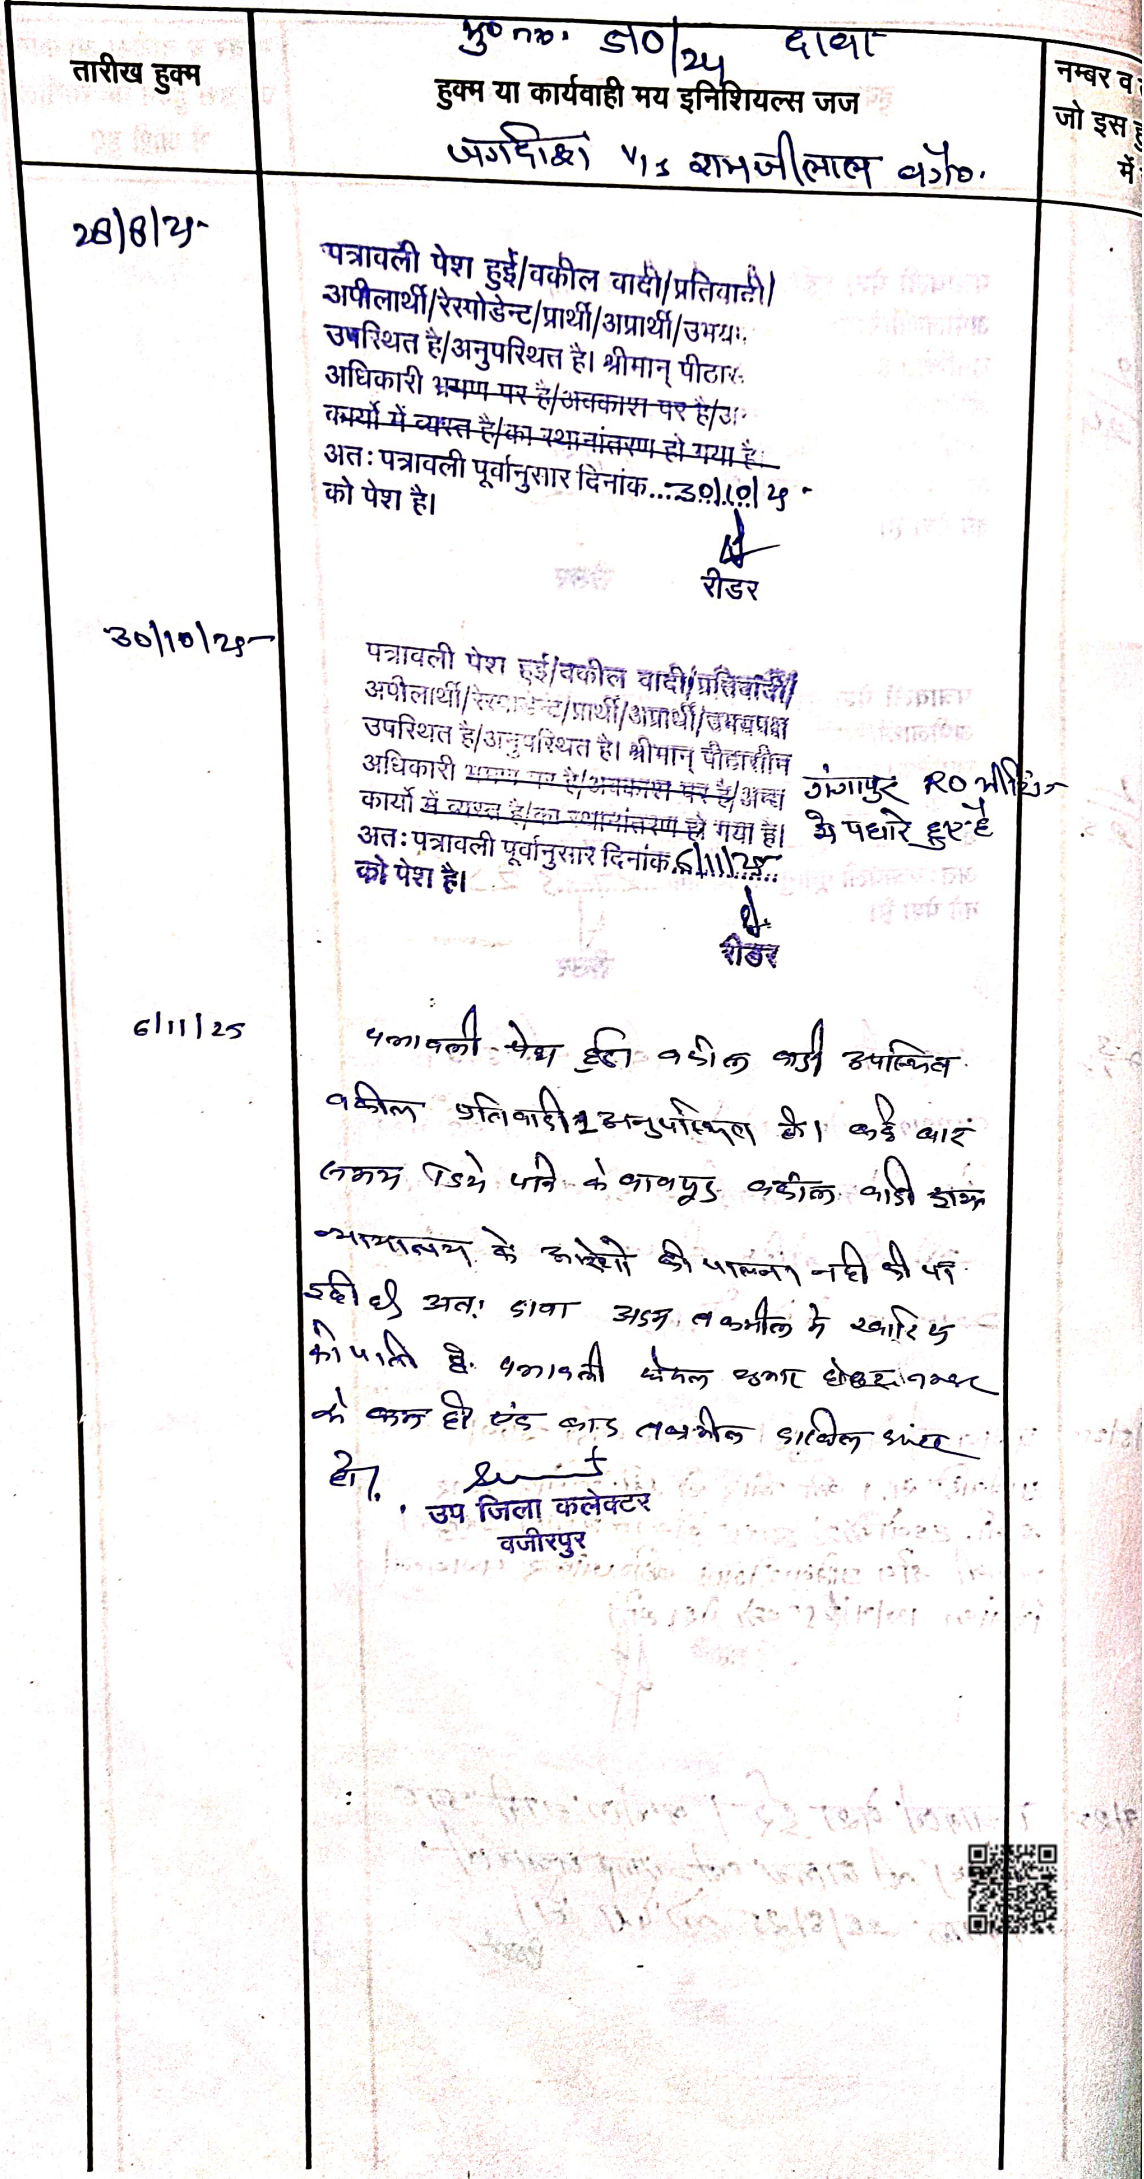 मु० न०. 510/24 दावा
तारीख हुक्म
हुक्म या कार्यवाही मय इनिशियल्स जज
नम्बर व
जो इस
में
जगदीश V/s रामजीलाल वगै०.
28/8/25
पत्रावली पेश हुई/वकील वादी/प्रतिवादी/
अपीलार्थी/रेस्पोडेन्ट/प्रार्थी/अप्रार्थी/उभय
उपस्थित है/अनुपस्थित है। श्रीमान् पीठास
अधिकारी भ्रमण पर है/अवकाश पर है/अ
कार्यो में व्यस्त है/का स्थानांतरण हो गया है।
अतः पत्रावली पूर्वानुसार दिनांक....30/10/25
को पेश है।
रीडर
30/10/25
पत्रावली पेश हुई/वकील वादी/प्रतिवादी/
अपीलार्थी/रेस्पोडेन्ट/प्रार्थी/अप्रार्थी/उभयपक्ष
उपस्थित है/अनुपस्थित है। श्रीमान् पीठासीन
अधिकारी भ्रमण पर है/अवकाश पर है/अन्य गंगापुर RO मीटिंग
कार्यो में व्यस्त है/का स्थानांतरण हो गया है। मे पधारे हुए है
अतः पत्रावली पूर्वानुसार दिनांक 6/11/25
को पेश है।
रीडर
6/11/25
पत्रावली पेश हुई। वकील वादी उपस्थित
वकील प्रतिवादी अनुपस्थित है। कई बार
समय दिये जाने के बावजूद वकील वादी द्वारा
न्यायालय के आदेशो की पालना नही की जा
रही है अतः दावा अदम तकमील मे खारिज
की जाती है. पत्रावली फैसल शुमार होकर नम्बर
से कम हो बाद तकमील दाखिल दफ्तर
हो।
उप जिला कलेक्टर
वजीरपुर